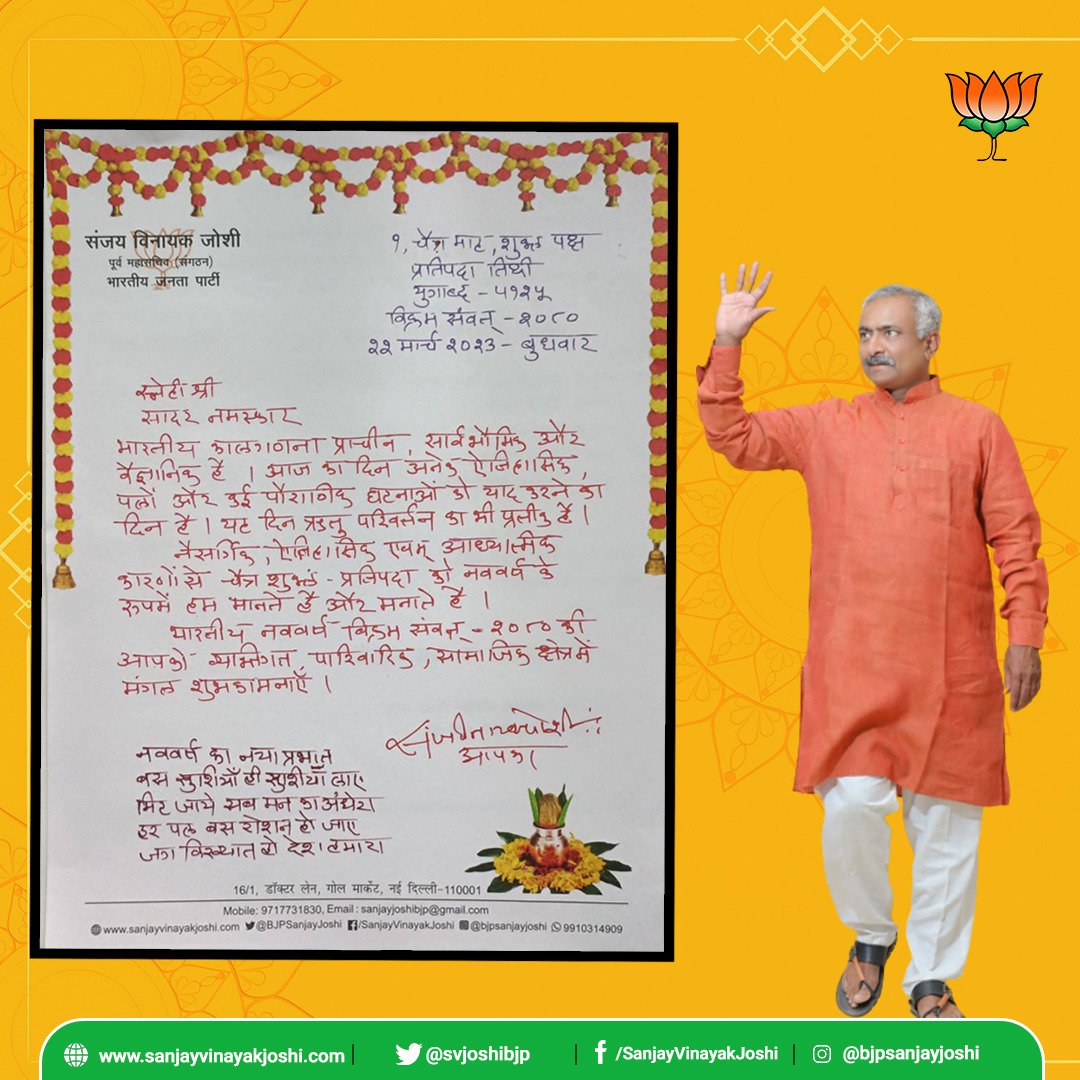 संजय विनायक जोशी
पूर्व महासचिव (संगठन)
भारतीय जनता पार्टी
१, चैत्र माह, शुक्ल पक्ष
प्रतिपदा तिथी
युगाब्द - ५१२५
विक्रम संवत् - २०८०
२२ मार्च २०२३ - बुधवार
स्नेही श्री
सादर नमस्कार
भारतीय कालगणना प्राचीन, सार्वभौमिक और
वैज्ञानिक है । आज का दिन अनेक ऐतिहासिक,
पलों और कई पौराणिक घटनाओं को याद करने का
दिन है । यह दिन ऋतु परिवर्तन का भी प्रतीक है ।
नैसर्गिक, ऐतिहासिक एवम् आध्यात्मिक
कारणों से चैत्र शुक्ल - प्रतिपदा को नववर्ष के
रूपमें हम मानते है और मनाते है ।
भारतीय नववर्ष विक्रम संवत् - २०८० की
आपको व्यक्तिगत, पारिवारिक, सामाजिक क्षेत्रमें
मंगल शुभकामनाएँ ।
आपका
नववर्ष का नया प्रभात
बस खुशीयाँ ही खुशीयाँ लाए
मिट जाये सब मन का अंधेरा
हर पल बस रोशन हो जाए
जग विख्यात हो देश हमारा
16/1, डॉक्टर लेन, गोल मार्केट, नई दिल्ली-110001
Mobile: 9717731830, Email : sanjayjoshibjp@gmail.com
www.sanjayvinayakjoshi.com @BJPSanjayJoshi /SanjayVinayakJoshi @bjpsanjayjoshi 9910314909
www.sanjayvinayakjoshi.com | @svjoshibjp | /SanjayVinayakJoshi | @bjpsanjayjoshi